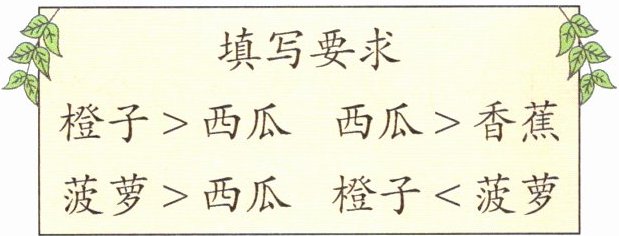 填写要求
橙子>西瓜 西瓜>香蕉
菠萝>西瓜 橙子<菠萝